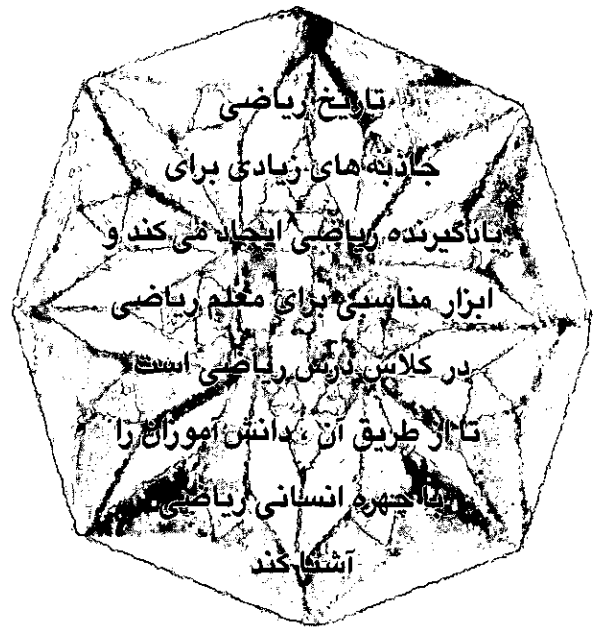 تاریخ ریاضی
جاذبه های زیادی برای
یادگیرنده ریاضی ایجاد می کند و
ابزار مناسبی برای معلم ریاضی
در کلاس درس ریاضی است
تا از طریق آن ، دانش آموزان را
با چهره انسانی ریاضی
آشنا کند